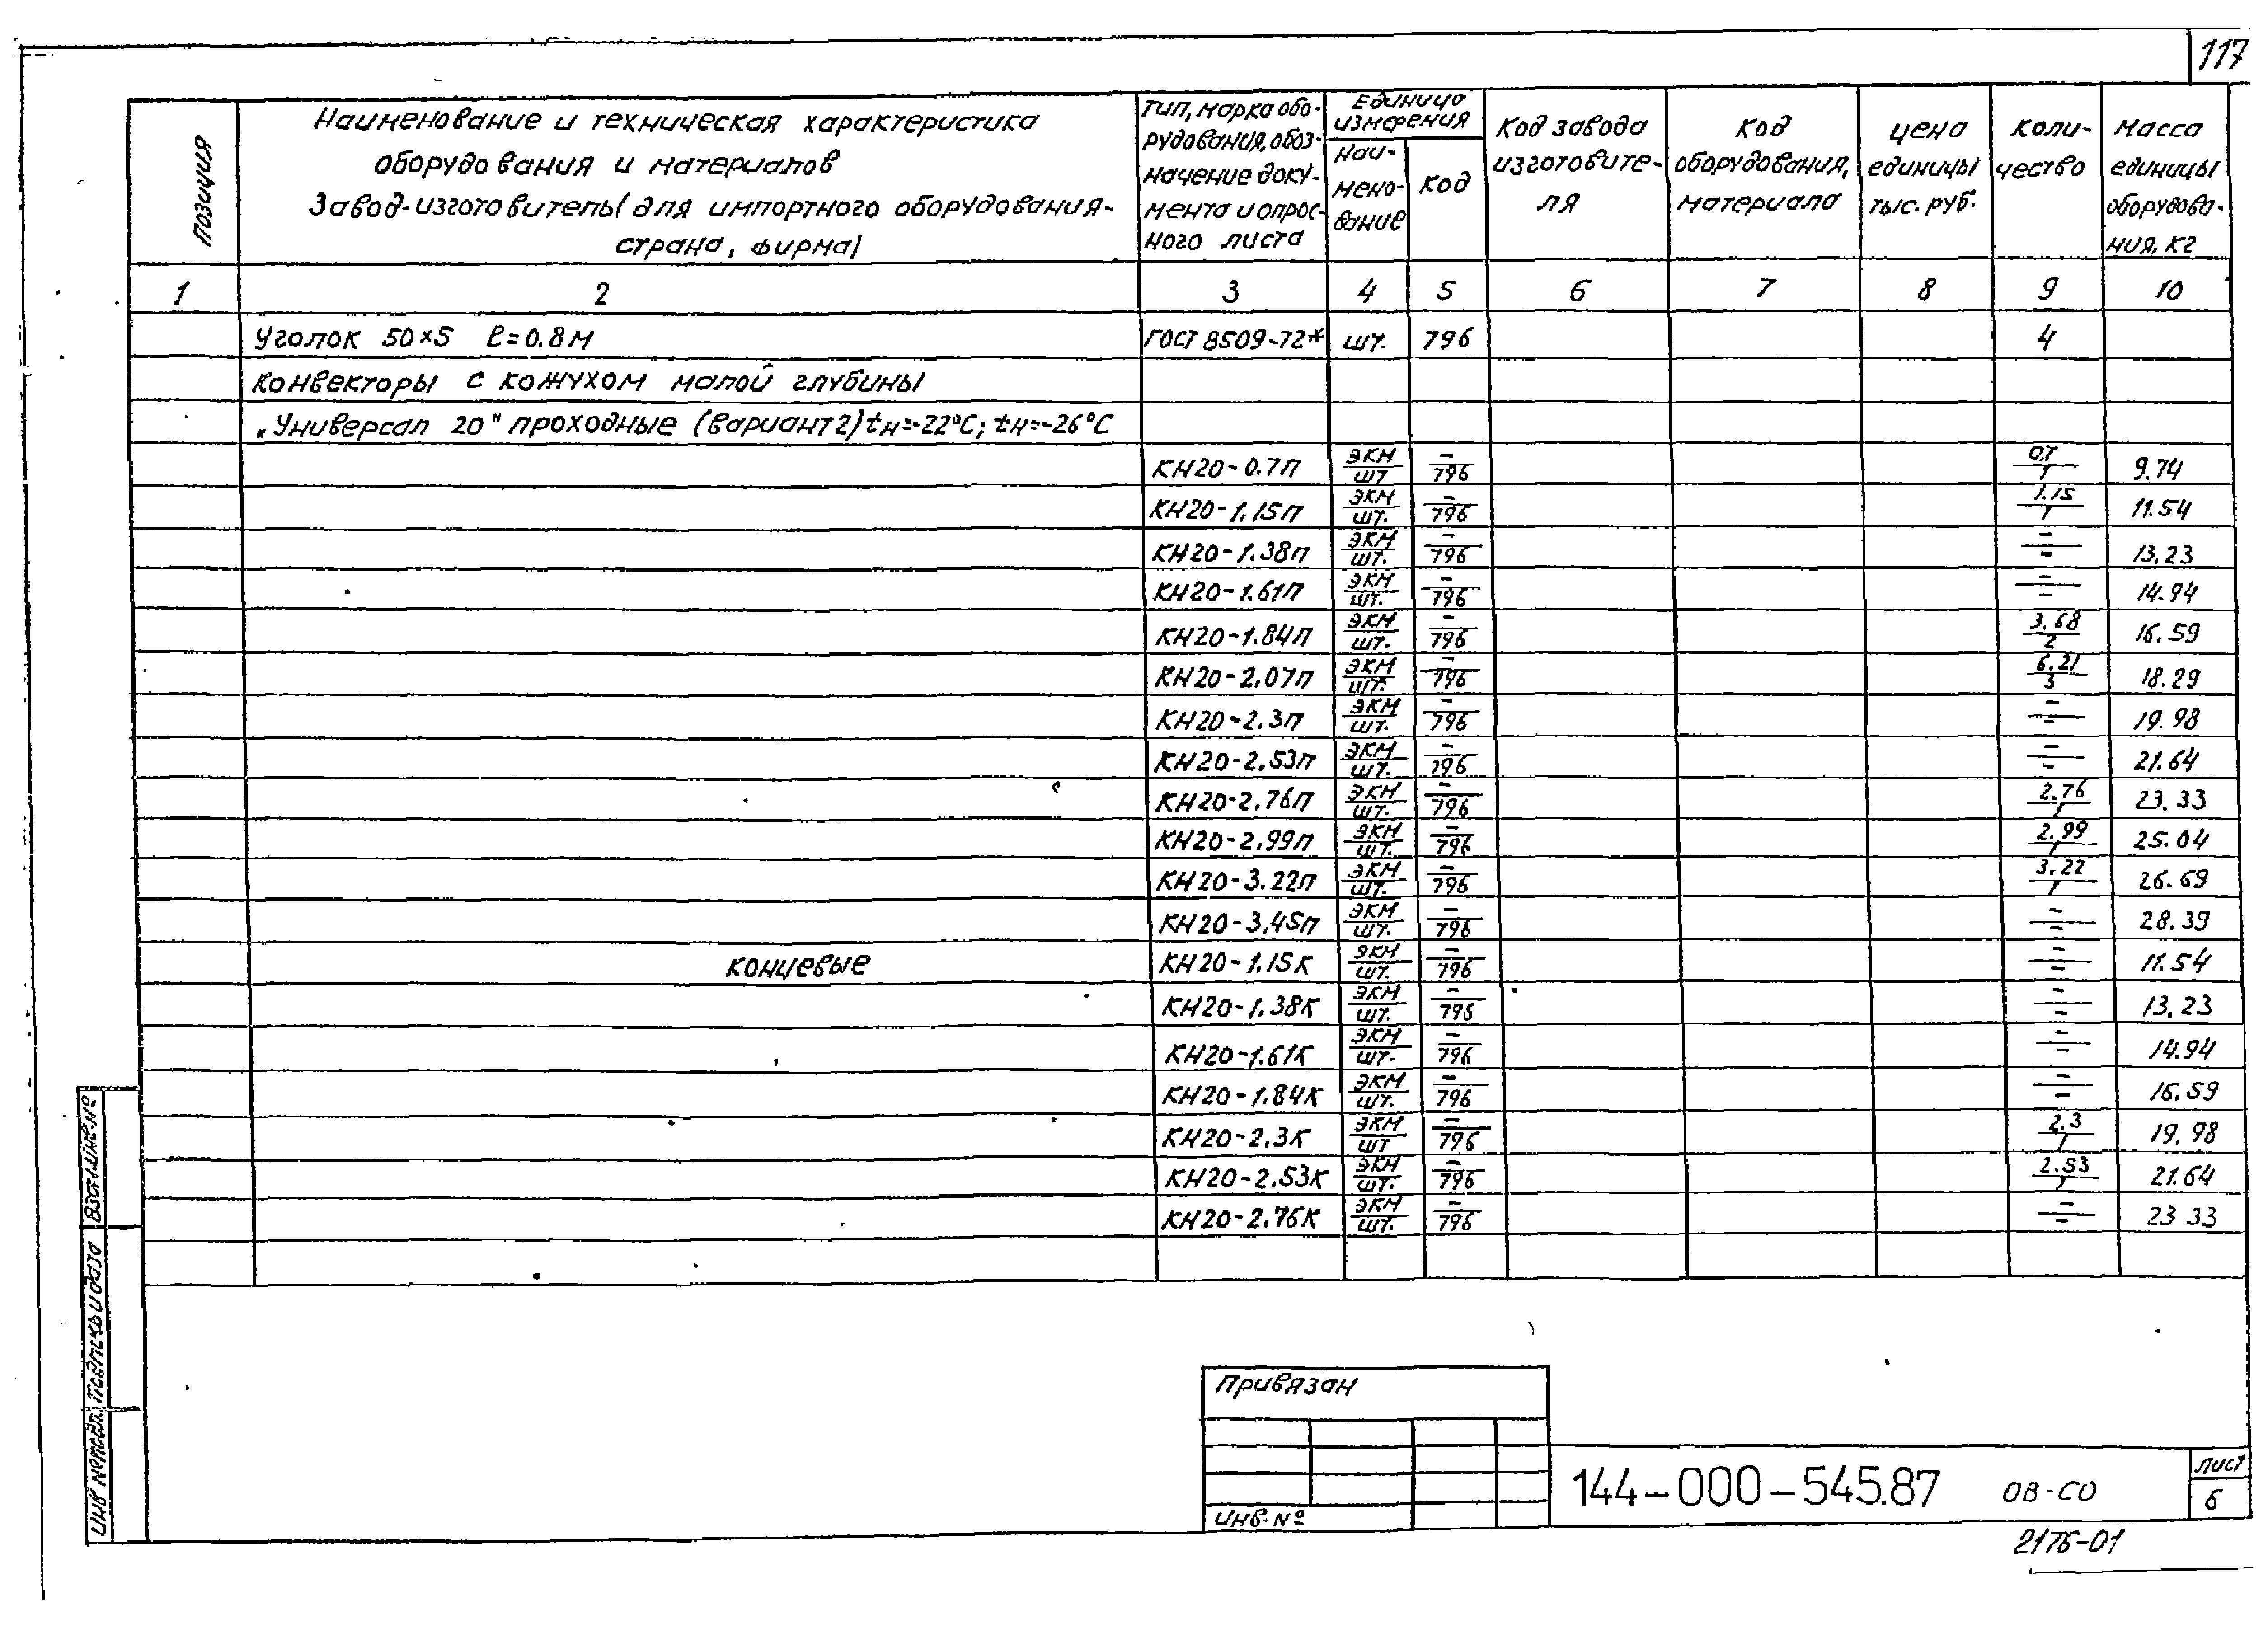 117
позиция
Наименование и техническая характеристика
оборудования и материалов
Завод-изготовитель (для импортного оборудования-
страна, фирма)
Тип, марка обо-
рудования, обоз-
начение доку-
мента и опрос-
ного листа
Единица
измерения
наи-
мено-
вание
код
Код завода
изготовите-
ля
Код
оборудования,
материала
цена
единицы
тыс. руб.
Коли-
чество
Масса
единицы
оборудова-
ния, кг
1 2 3 4 5 6 7 8 9 10
Уголок 50×5 ℓ=0.8м ГОСТ 8509-72* шт. 796 4
Конвекторы с кожухом малой глубины
„Универсал 20" проходные (вариант 2) tн=-22°С; tн=-26°С
КН20-0.7п экм/шт -/796 0.7/1 9.74
КН20-1.15п экм/шт. -/796 1.15/1 11.54
КН20-1.38п экм/шт. -/796 -/- 13.23
КН20-1.61п экм/шт. -/796 -/- 14.94
КН20-1.84п экм/шт. -/796 3.68/2 16.59
КН20-2.07п экм/шт. -/796 6.21/3 18.29
КН20-2.3п экм/шт. -/796 -/- 19.98
КН20-2.53п экм/шт. -/796 -/- 21.64
КН20-2.76п экм/шт. -/796 2.76/1 23.33
КН20-2.99п экм/шт. -/796 2.99/1 25.04
КН20-3.22п экм/шт. -/796 3.22/1 26.69
КН20-3,45п экм/шт. -/796 -/- 28.39
концевые КН20-1.15К экм/шт. -/796 -/- 11.54
КН20-1.38К экм/шт. -/796 -/- 13.23
КН20-1.61К экм/шт. -/796 -/- 14.94
КН20-1.84К экм/шт. -/796 -/- 16.59
КН20-2.3К экм/шт -/796 2.3/1 19.98
КН20-2.53К экм/шт. -/796 2.53/1 21.64
КН20-2.76К экм/шт. -/796 -/- 23 33
Взам.инв.№
Подпись и дата
Инв №подл.
Привязан
Инв.№
144-000-545.87 ОВ-СО
лист
6
2176-01